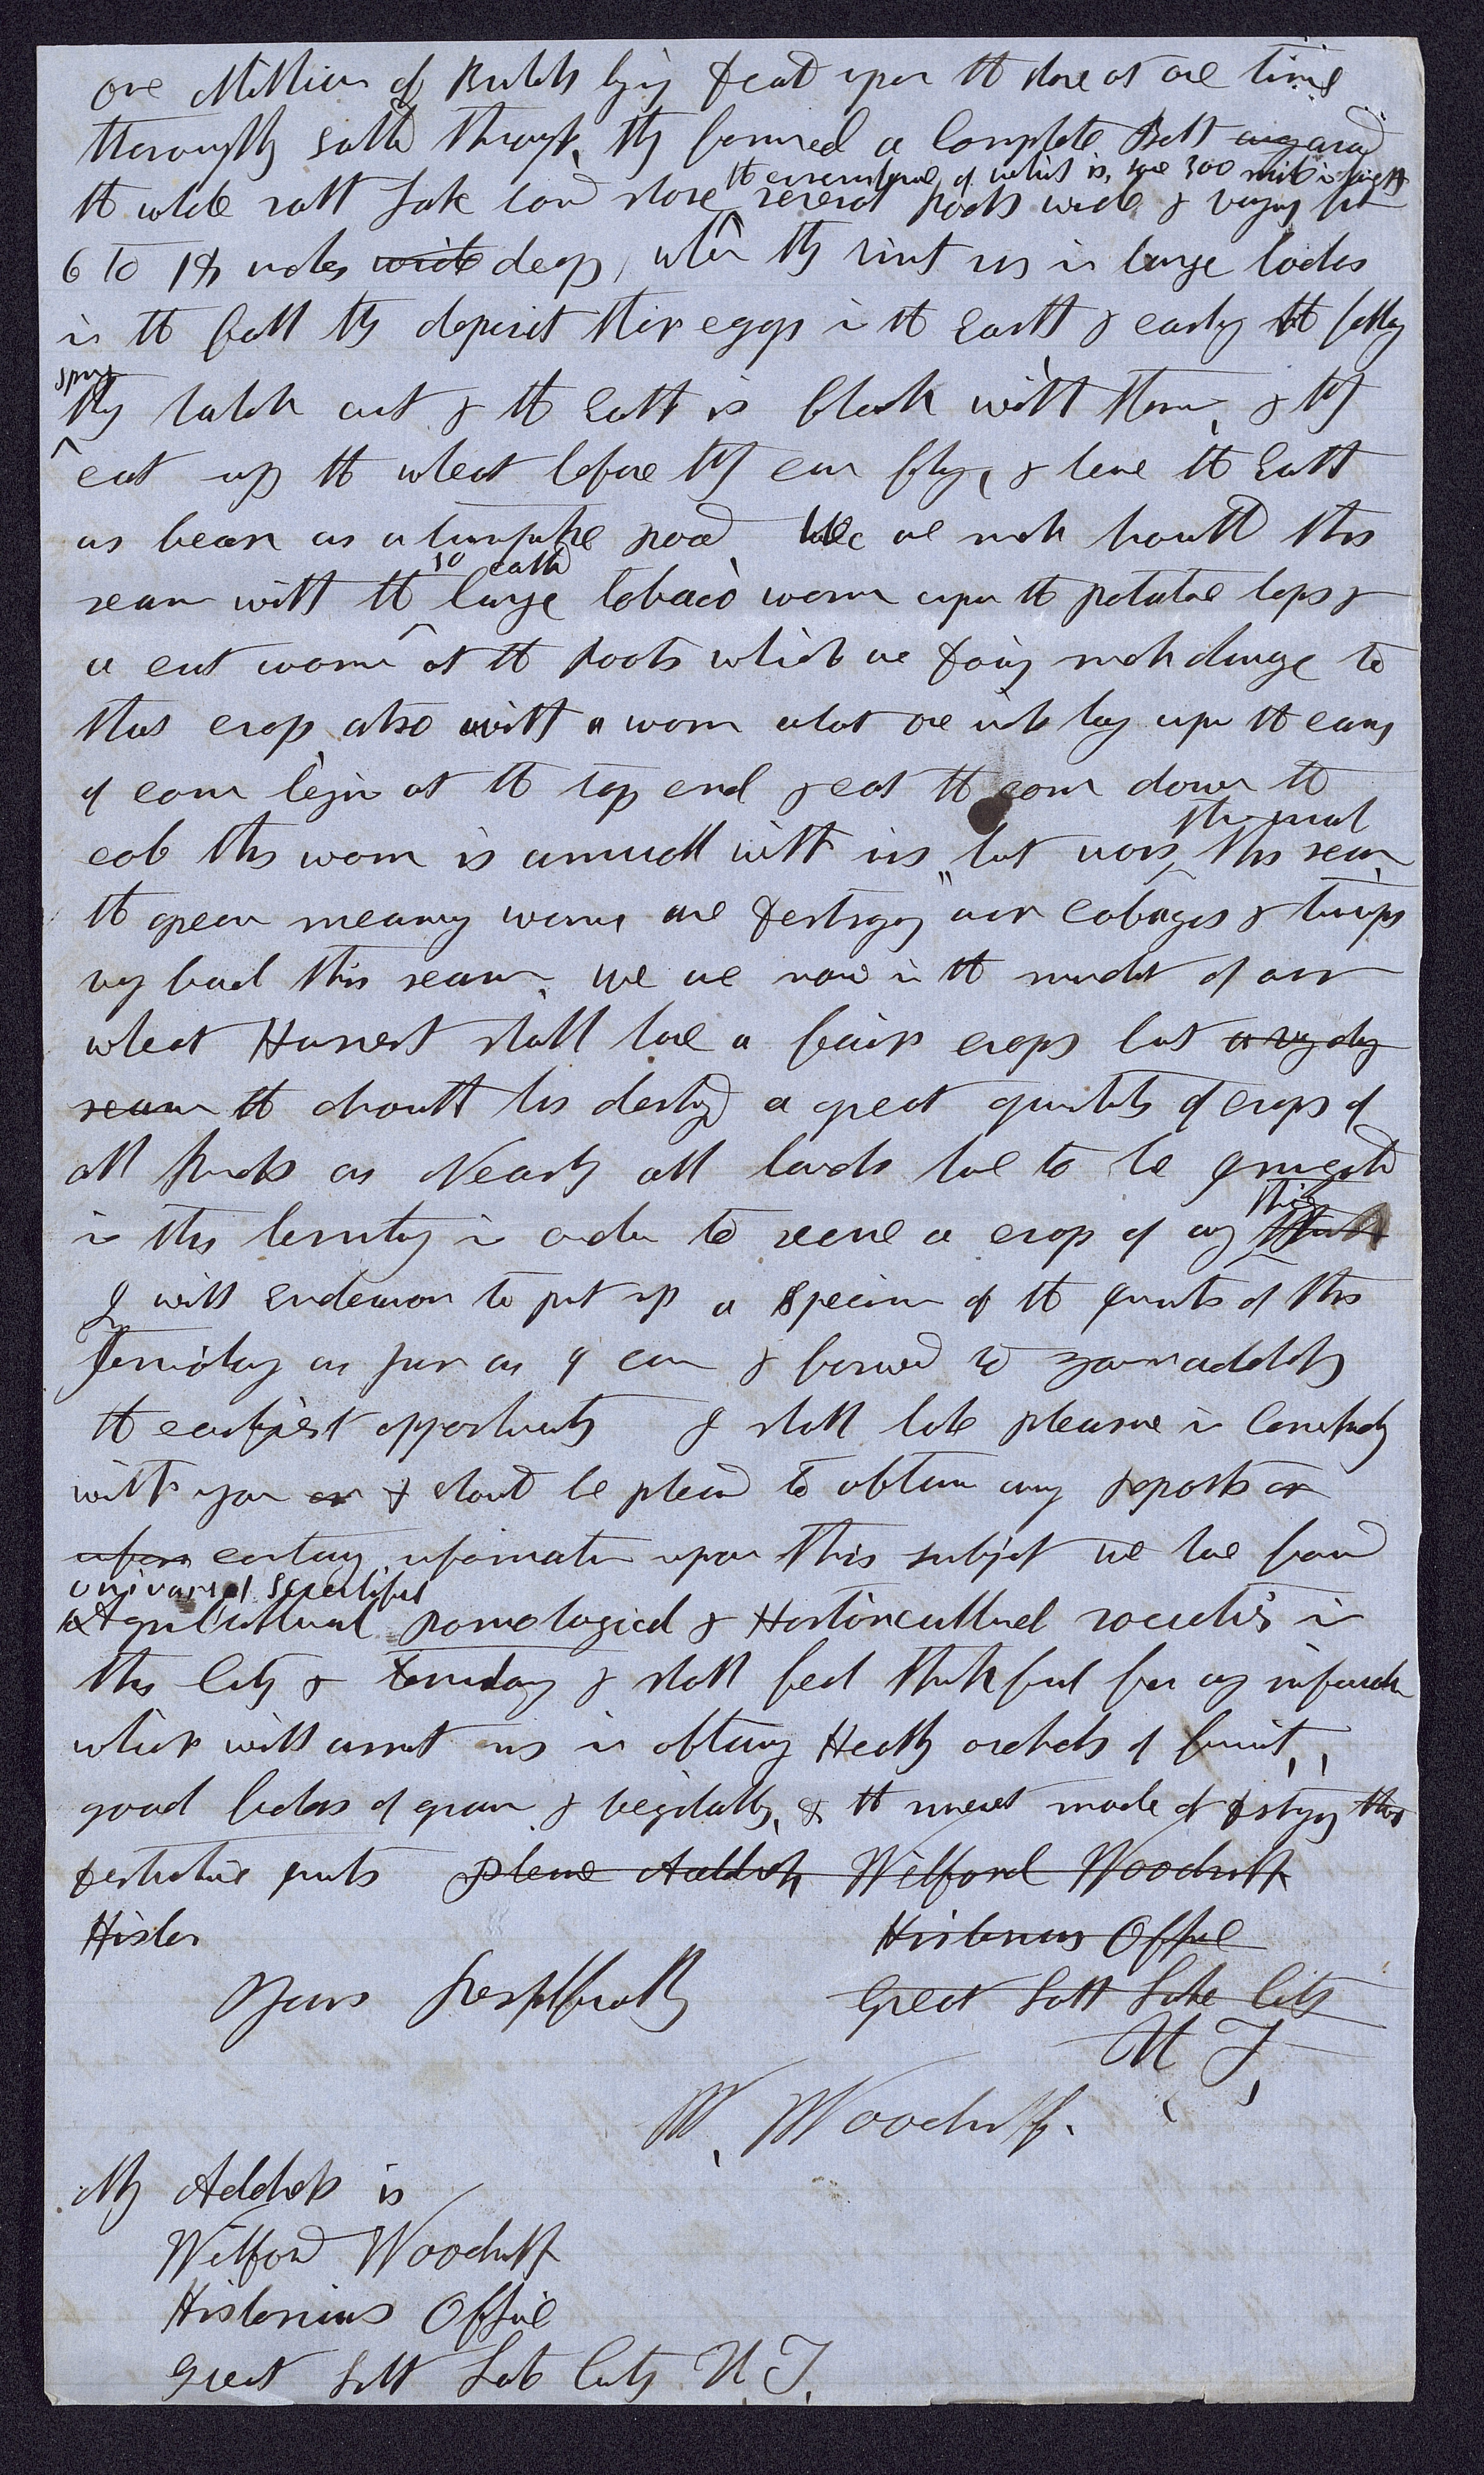 one Million of Bushels lying dead upon the shore at one time
thoroughly salted through, they formed a complete Belt around
the circumference of which is, some 300 miles in length
the whole salt Lake and shore several rods wide & varying from
6 to 18 inches wide deep, when they visit us in large bodies
in the fall they deposit their eggs in the Earth & early the following
spring
they hatch out & the Earth is black with them, & they
eat up the wheat before they can fly, & leave the Earth
as bear as a turnpike road. We are much troubled this
so called
season with the large tobacco worm upon the potatoe tops &
a cut worm at the roots which are doing much damage to
this crop also with a worm upon the ears
of corn begin at the top end & eat the corn down the
cob this worm is annual with us, but worse this season
the green worms are destroying our cabages & turnips
very bad this season. we are now in the midst of our
wheat Harvest shall have a fair crops but a very dry
season the drouth has destroyed a great quantity of crops of
all kinds as Nearly all lands have to be irrigated
thing
in this territory in order to secure a crop of any
I will endeavor to put up a specimen of the insects of this
Territory as far as I can & forward to your address
the earliest opportunity I shall take pleasure in
with you or & should be pleased to obtain any reports or
information upon this subject we have formed
univarsal scientifick
Agricultural pomological & Horticultural societies in
this City & territory & shall feel thankful for any information
which will assist us in obtaining Healthy orchards of fruit,
good fields of grain & vegitables, & the surest mode of destroying those
destructive insects please Address Wilford Woodruff
Histor
Historians Office
Yours Respectfully
Great Salt Lake City
U T
W. Woodruff.
My Address is
Wilford Woodruff
Historians Office
Great Salt Lake City U. T.